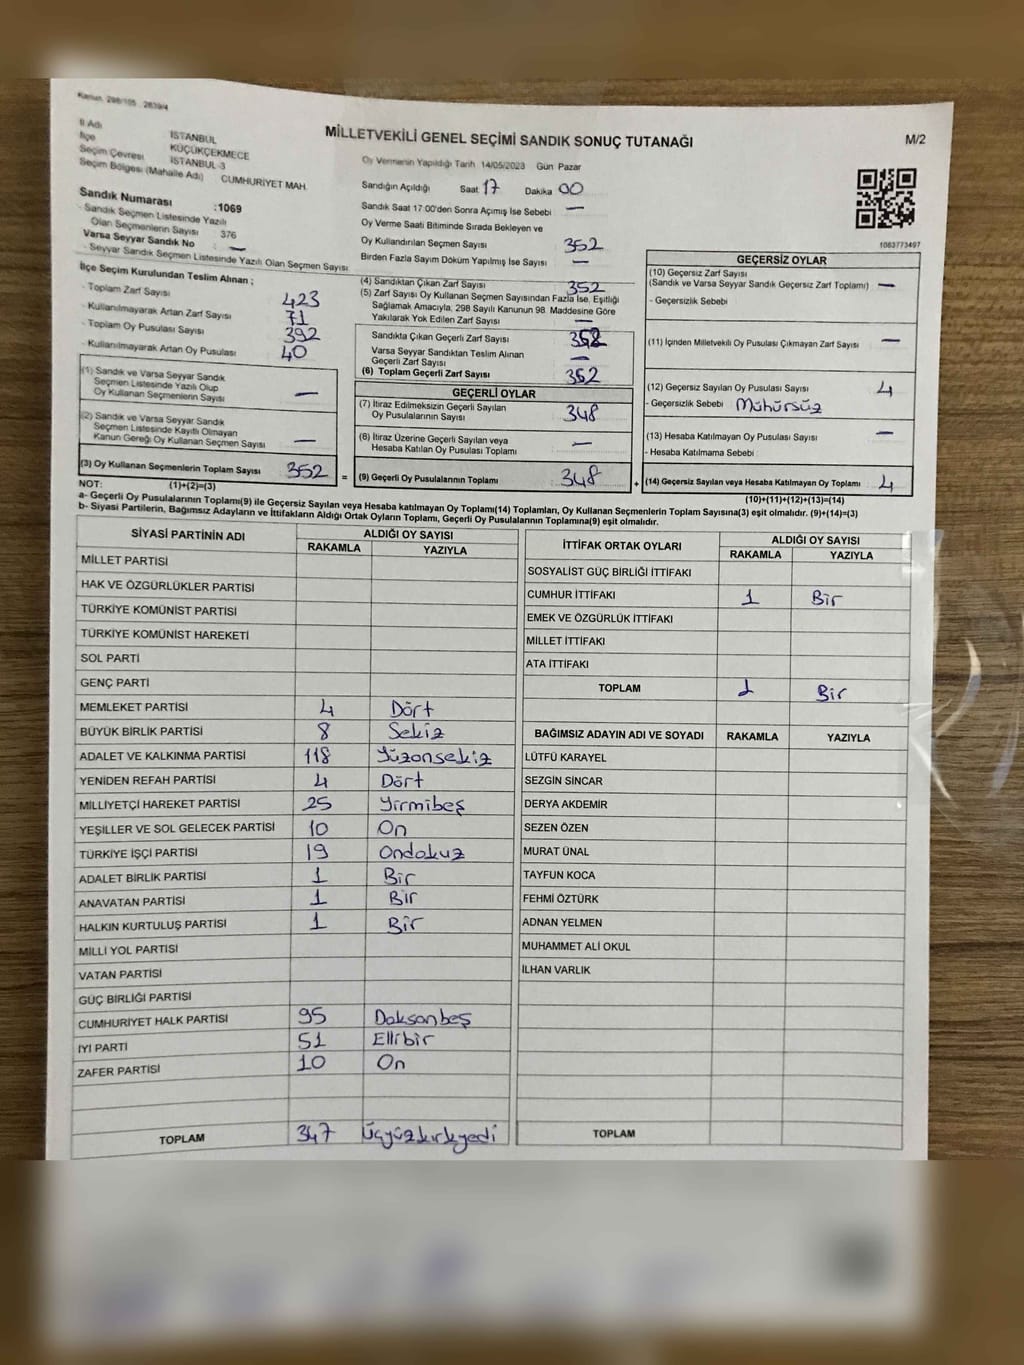 Kanun, 298/105 , 2839/4
MİLLETVEKİLİ GENEL SEÇİMİ SANDIK SONUÇ TUTANAĞI
M/2
İl Adı İSTANBUL
İlçe KÜÇÜKÇEKMECE
Seçim Çevresi İSTANBUL-3
Seçim Bölgesi (Mahalle Adı) CUMHURİYET MAH.
Sandık Numarası :1069
- Sandık Seçmen Listesinde Yazılı
Olan Seçmenlerin Sayısı 376
Varsa Seyyar Sandık No —
- Seyyar Sandık Seçmen Listesinde Yazılı Olan Seçmen Sayısı
Oy Vermenin Yapıldığı Tarih 14/05/2023 Gün Pazar
Sandığın Açıldığı Saat 17 Dakika 00
Sandık Saat 17:00'den Sonra Açımış İse Sebebi —
Oy Verme Saati Bitiminde Sırada Bekleyen ve
Oy Kullandırılan Seçmen Sayısı 352
Birden Fazla Sayım Döküm Yapılmış İse Sayısı —
1063773497
İlçe Seçim Kurulundan Teslim Alınan ;
- Toplam Zarf Sayısı 423
- Kullanılmayarak Artan Zarf Sayısı 71
- Toplam Oy Pusulası Sayısı 392
- Kullanılmayarak Artan Oy Pusulası 40
(1) Sandık ve Varsa Seyyar Sandık
Seçmen Listesinde Yazılı Olup
Oy Kullanan Seçmenlerin Sayısı —
(2) Sandık ve Varsa Seyyar Sandık
Seçmen Listesinde Kayıtlı Olmayan
Kanun Gereği Oy Kullanan Seçmen Sayısı —
(3) Oy Kullanan Seçmenlerin Toplam Sayısı 352 =
(4) Sandıktan Çıkan Zarf Sayısı 352
(5) Zarf Sayısı Oy Kullanan Seçmen Sayısından Fazla İse, Eşitliği
Sağlamak Amacıyla, 298 Sayılı Kanunun 98. Maddesine Göre
Yakılarak Yok Edilen Zarf Sayısı —
Sandıkta Çıkan Geçerli Zarf Sayısı 352
Varsa Seyyar Sandıktan Teslim Alınan
Geçerli Zarf Sayısı —
(6) Toplam Geçerli Zarf Sayısı 352
GEÇERLİ OYLAR
(7) İtiraz Edilmeksizin Geçerli Sayılan
Oy Pusulalarının Sayısı 348
(8) İtiraz Üzerine Geçerli Sayılan veya
Hesaba Katılan Oy Pusulası Toplamı —
(9) Geçerli Oy Pusulalarının Toplamı 348 +
GEÇERSİZ OYLAR
(10) Geçersiz Zarf Sayısı
(Sandık ve Varsa Seyyar Sandık Geçersiz Zarf Toplamı) —
- Geçersizlik Sebebi
(11) İçinden Milletvekili Oy Pusulası Çıkmayan Zarf Sayısı —
(12) Geçersiz Sayılan Oy Pusulası Sayısı 4
- Geçersizlik Sebebi Mühürsüz
(13) Hesaba Katılmayan Oy Pusulası Sayısı —
- Hesaba Katılmama Sebebi
(14) Geçersiz Sayılan veya Hesaba Katılmayan Oy Toplamı 4
NOT: (1)+(2)=(3)
(10)+(11)+(12)+(13)=(14)
a- Geçerli Oy Pusulalarının Toplamı(9) ile Geçersiz Sayılan veya Hesaba katılmayan Oy Toplamı(14) Toplamları, Oy Kullanan Seçmenlerin Toplam Sayısına(3) eşit olmalıdır. (9)+(14)=(3)
b- Siyasi Partilerin, Bağımsız Adayların ve İttifakların Aldığı Ortak Oyların Toplamı, Geçerli Oy Pusulalarının Toplamına(9) eşit olmalıdır.
SİYASİ PARTİNİN ADI ALDIĞI OY SAYISI
RAKAMLA YAZIYLA
MİLLET PARTİSİ
HAK VE ÖZGÜRLÜKLER PARTİSİ
TÜRKİYE KOMÜNİST PARTİSİ
TÜRKİYE KOMÜNİST HAREKETİ
SOL PARTİ
GENÇ PARTİ
MEMLEKET PARTİSİ 4 Dört
BÜYÜK BİRLİK PARTİSİ 8 Sekiz
ADALET VE KALKINMA PARTİSİ 118 Yüzonsekiz
YENİDEN REFAH PARTİSİ 4 Dört
MİLLİYETÇİ HAREKET PARTİSİ 25 Yirmibeş
YEŞİLLER VE SOL GELECEK PARTİSİ 10 On
TÜRKİYE İŞÇİ PARTİSİ 19 Ondokuz
ADALET BİRLİK PARTİSİ 1 Bir
ANAVATAN PARTİSİ 1 Bir
HALKIN KURTULUŞ PARTİSİ 1 Bir
MİLLİ YOL PARTİSİ
VATAN PARTİSİ
GÜÇ BİRLİĞİ PARTİSİ
CUMHURİYET HALK PARTİSİ 95 Doksanbeş
İYİ PARTİ 51 Ellibir
ZAFER PARTİSİ 10 On
TOPLAM 347 Üçyüzkırkyedi
İTTİFAK ORTAK OYLARI ALDIĞI OY SAYISI
RAKAMLA YAZIYLA
SOSYALİST GÜÇ BİRLİĞİ İTTİFAKI
CUMHUR İTTİFAKI 1 Bir
EMEK VE ÖZGÜRLÜK İTTİFAKI
MİLLET İTTİFAKI
ATA İTTİFAKI
TOPLAM 1 Bir
BAĞIMSIZ ADAYIN ADI VE SOYADI RAKAMLA YAZIYLA
LÜTFÜ KARAYEL
SEZGİN SİNCAR
DERYA AKDEMİR
SEZEN ÖZEN
MURAT ÜNAL
TAYFUN KOCA
FEHMİ ÖZTÜRK
ADNAN YELMEN
MUHAMMET ALİ OKUL
İLHAN VARLIK
TOPLAM